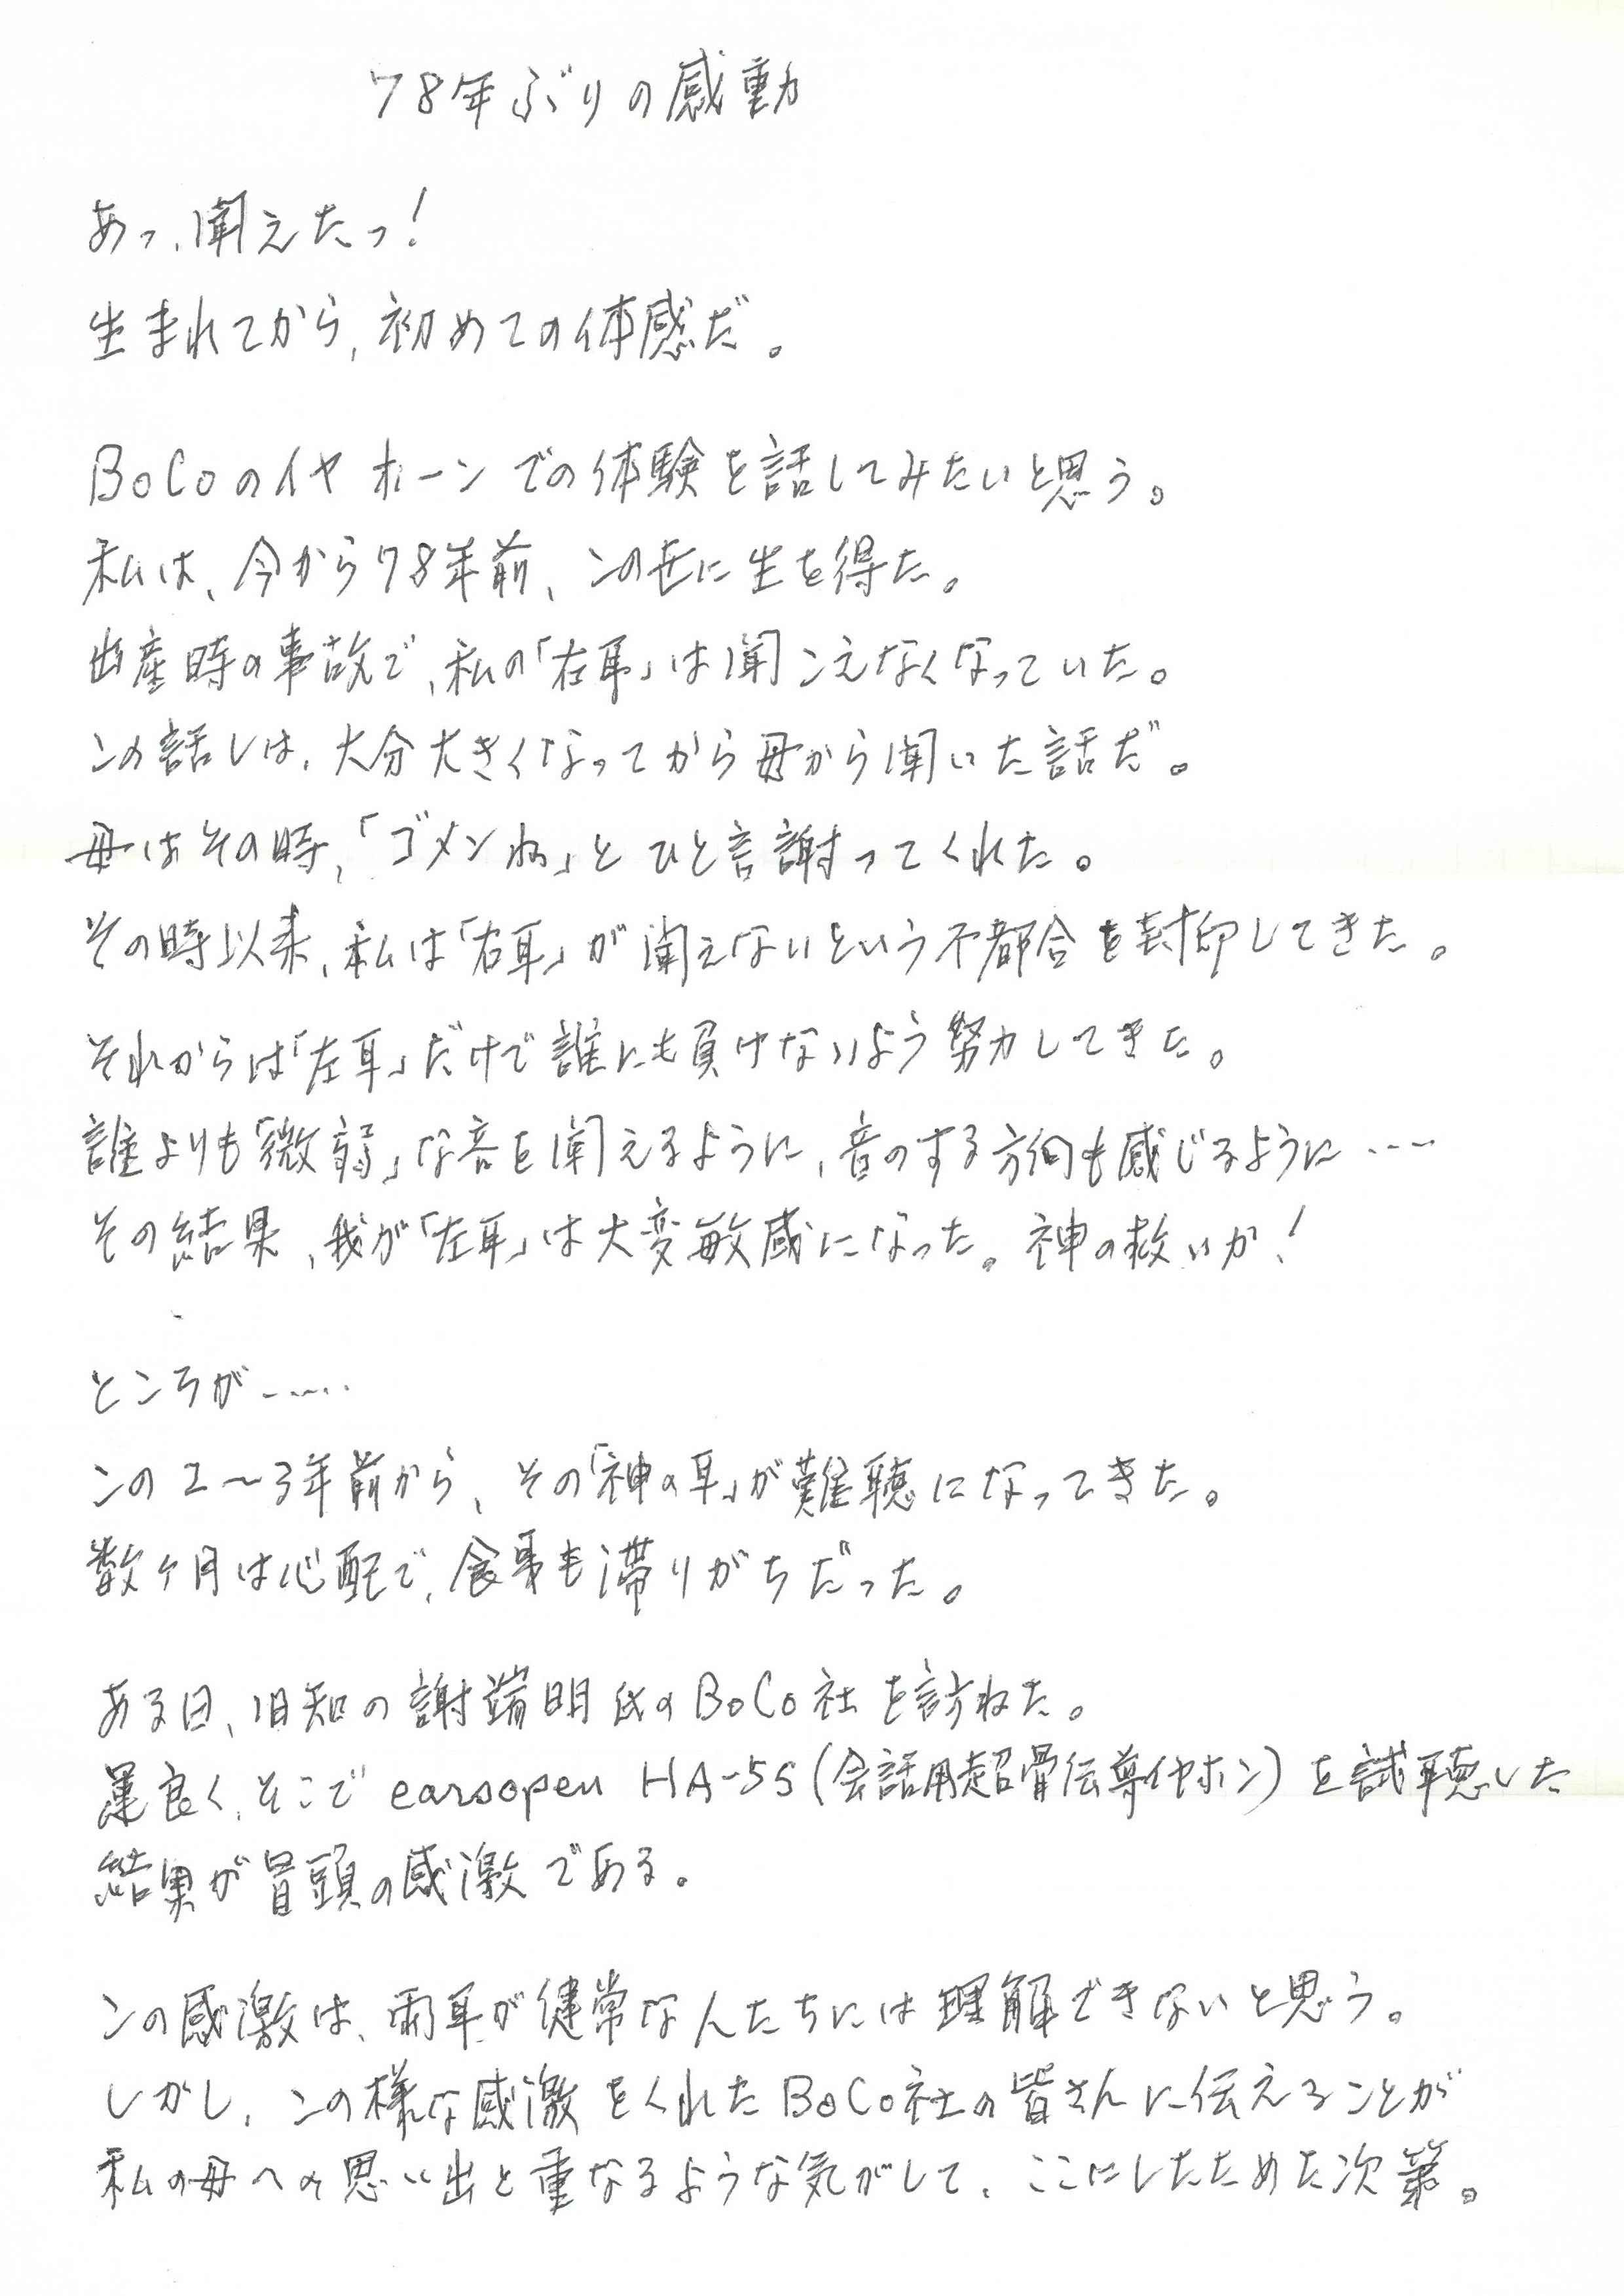 78年ぶりの感動
あっ、聞えたっ!
生まれてから、初めての体感だ。
BoCoのイヤホーンでの体験を話してみたいと思う。
私は、今から78年前、この世に生を得た。
出産時の事故で、私の「右耳」は聞こえなくなっていた。
この話しは、大分大きくなってから母から聞いた話だ。
母はその時、「ゴメンね」とひと言謝ってくれた。
その時以来、私は「右耳」が聞えないという不都合を封印してきた。
それからは「左耳」だけで誰にも負けないよう努力してきた。
誰よりも「微弱」な音を聞えるように、音のする方向も感じるように……
その結果、我が「左耳」は大変敏感になった。神の救いか!
ところが……
この2〜3年前から、その「神の耳」が難聴になってきた。
数ヶ月は心配で、食事も滞りがちだった。
ある日、旧知の謝端明氏のBoCo社を訪ねた。
運良く、そこでearsopen HA-5S(会話用超骨伝導イヤホン)を試聴した
結果が冒頭の感激である。
この感激は、両耳が健常な人たちには理解できないと思う。
しかし、この様な感激をくれたBoCo社の皆さんに伝えることが
私の母への思い出と重なるような気がして、ここにしたためた次第。